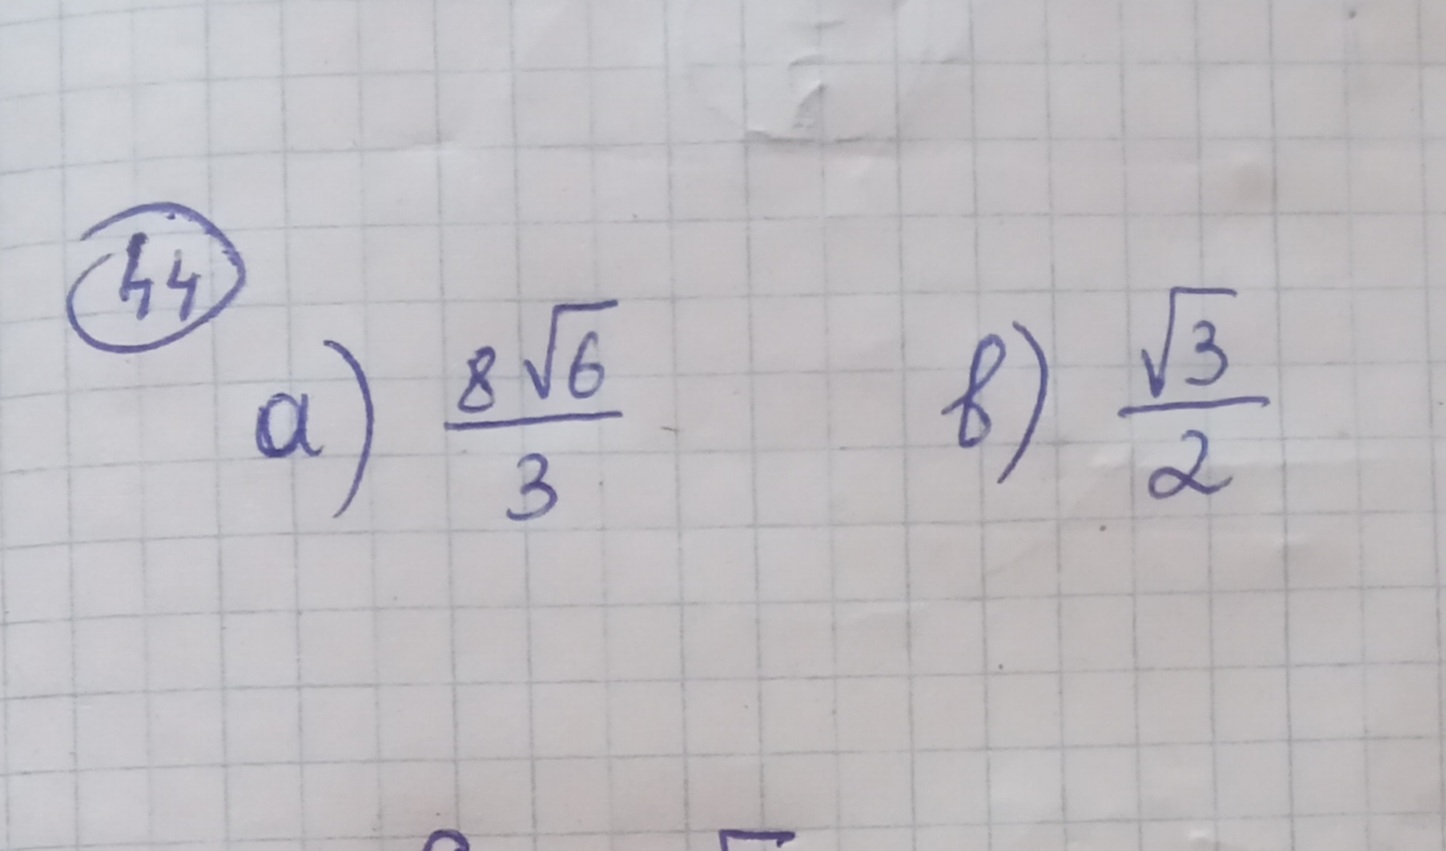 44
а) 8√6/3 в) √3/2